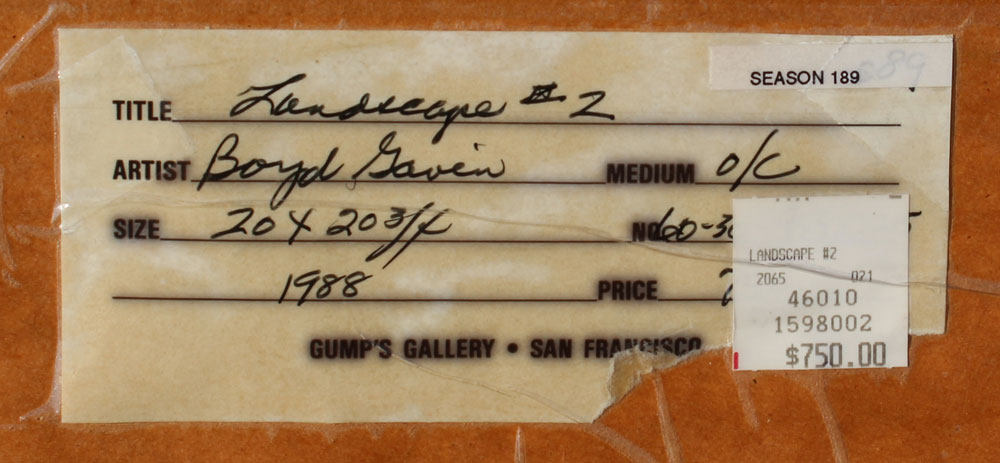 SEASON 189
TITLE Landscape # 2
ARTIST Boyd Gavin MEDIUM O/C
SIZE 20 X 20 3/4 NO. 60-3
1988 PRICE
GUMP'S GALLERY • SAN FRANCISCO
LANDSCAPE #2
2065 021
46010
1598002
$750.00